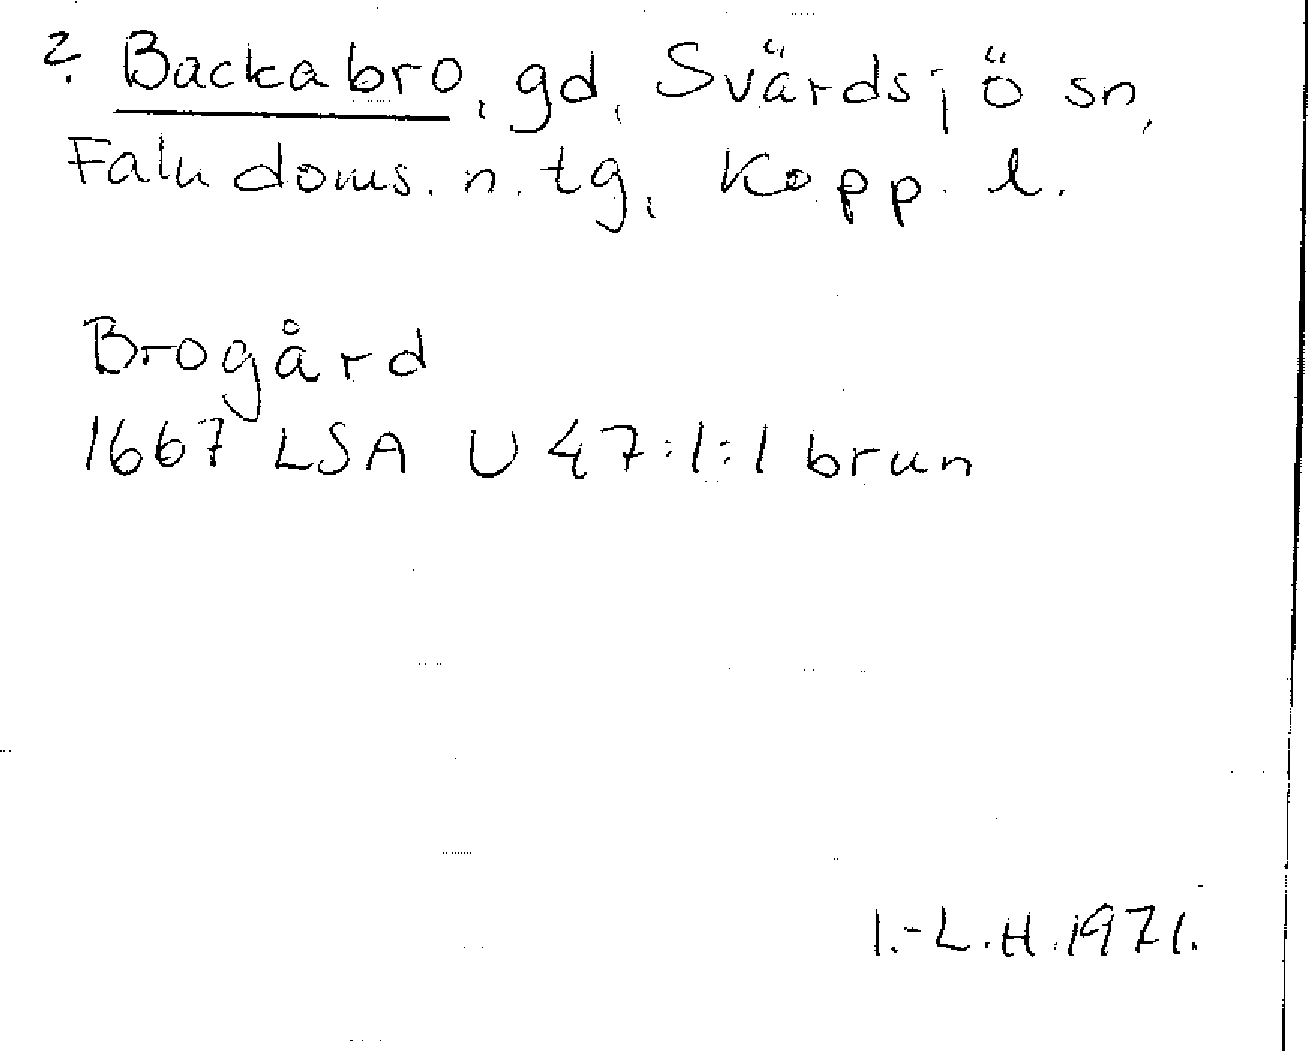 ? Backabro, gd, Svärdsjö sn,
Falu doms. n. tg, Kopp. l.
Brogård
1667 LSA U 47:1:1 brun
I.-L.H. 1971.